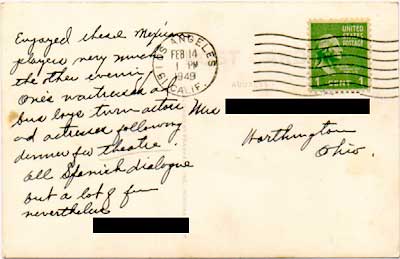 Enjoyed these Mexican
players very much
the other evening.
One's waitresses and
bus boys turn actors
and actresses following
dinner for theatre.
All Spanish dialogue
but a lot of fun
nevertheless
LOS ANGELES
FEB 14
1 PM
1949
CALIF.
UNITED
STATES
POSTAGE
1 CENT 1
Mrs
Worthington
Ohio.